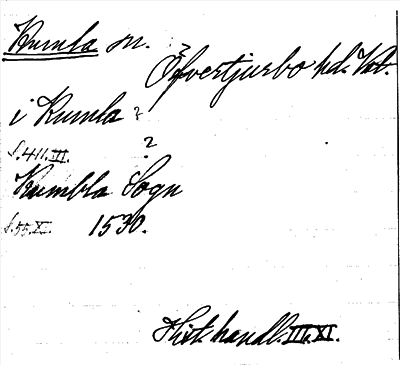 Kumla sn.
Öfvertjurbo hd. Vstl.
i Kumla ?
S. 411. III. ?
Kumbla Sogn
S. 55. XI. 1530.
Hist. handl. III, XI.